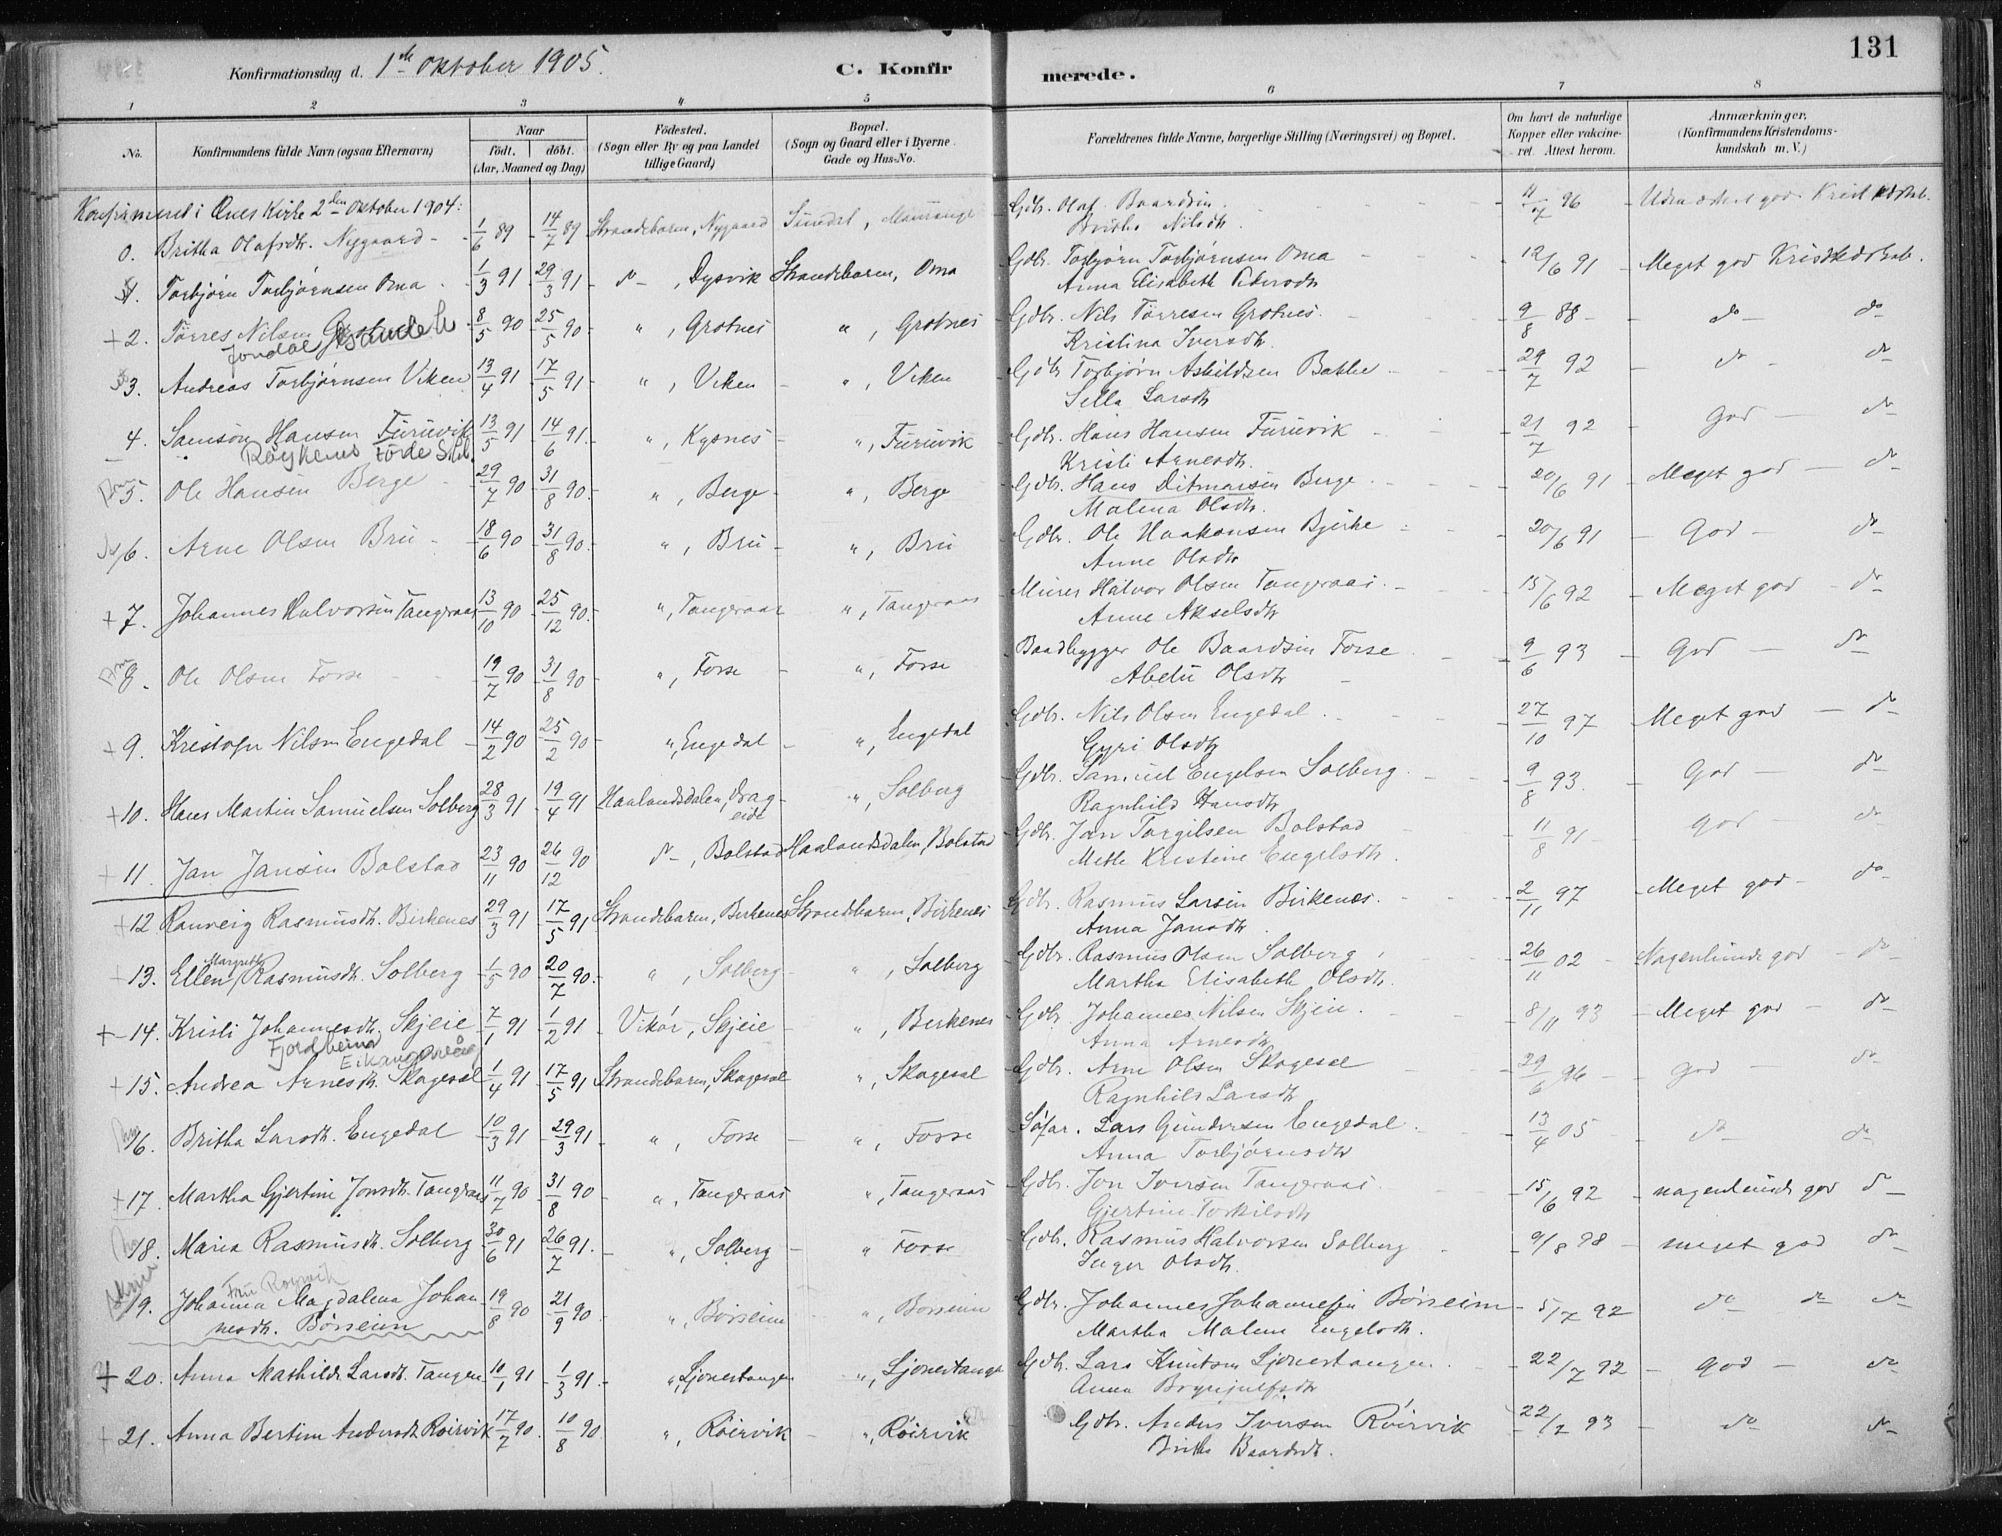 131
Konfirmationsdag d. 1ste Oktober 1905. C. Konfirmerede.
1 2 3 4 5 6 7 8
No. Konfirmandens fulde Navn (ogsaa Efternavn) Naar født. døbt. (Aar, Maaned og Dag) Fødested. (Sogn eller By og paa Landet tillige Gaard) Bopæl. (Sogn og Gaard eller i Byerne Gade og Hus-No. Forældrenes fulde Navne, borgerlige Stilling (Næringsvei) og Bopæl. Om havt de naturlige Kopper eller vaccineret. Attest herom. Anmærkninger. (Konfirmandens Kristendomskundskab m. V.)
Konfirmeret i Ænes Kirke 2den Oktober 1904:
0. Britha Olafsdtr. Nygaard 1/6 89 14/7 89 Strandebarm, Nygaard Sundal, Mauranger Gdbr. Olaf Baardsen 11/7 96
Britha Nilsdtr.
1. Torbjørn Torbjørnsen Oma 1/3 91 29/3 91 do, Dysvik Strandebarm, Oma Gdbr. Torbjørn Torbjørnsen Oma 12/6 91 Meget god Kristdskab.
Anna Elisabeth Pedersdtr
+ 2. Tørres Nilsen Grotnes 8/5 90 25/5 90 ", Grotnes ", Grotnes Gdbr. Nils Tørresen Grotnes. 9/8 88 do do
Jondal Kristina Iversdtr.
3. Andreas Torbjørnsen Viken 13/4 91 17/5 91 ", Viken ", Viken Gdbr Torbjørn Askildsen Bakke 29/7 92 do do
Sella Larsdtr
4. Samson Hansen Furuvik 13/5 91 14/6 91 ", Kysnes ", Furuvik Gdbr. Hans Hansen Furuvik 21/7 92 God do
Røykenes Førde S.hl. Kristi Arnesdtr.
5. Ole Hansen Berge 29/7 90 31/8 90 ", Berge ", Berge Gdbr. Hans Ditmarsen Berge 20/6 91 Meget god do
Malena Olsdtr.
6. Arne Olsen Bru 18/6 90 31/8 90 ", Bru ", Bru Gdbr. Ole Haakonsen Bjerke 20/6 91 God do
Anne Olsdtr
+ 7. Johannes Halvorsen Tangeraas 13/10 90 25/12 90 ", Tangeraas ", Tangeraas Murer Halvor Olsen Tangeraas 15/6 92 Meget god do
Anne Akselsdtr
8. Ole Olsen Forse 19/7 90 31/8 90 ", Forse ", Forse Baadbygger Ole Baardsen Forse 9/6 93 God do
Abelu Olsdtr
+ 9. Kristofer Nilsen Engedal 14/2 90 25/2 90 ", Engedal ", Engedal Gdbr. Nils Olsen Engedal 27/10 97 Meget god do
Gyri Olsdtr
+ 10. Hans Martin Samuelsen Solberg 28/3 91 19/4 91 Haalandsdalen, Drageide ", Solberg Gdbr. Samuel Engelsen Solberg 9/8 93. God do
Ragnhild Hansdtr
+ 11. Jan Jansen Bolstad 23/11 90 26/12 90 do, Bolstad Haalandsdalen, Bolstad Gdbr. Jan Torgilsen Bolstad 11/8 91 God do
Mette Kristine Engelsdtr.
+ 12 Ranveig Rasmusdtr. Birkenes 29/3 91 17/5 91 Strandebarm, Berkenes Strandebarm, Birkenes Gdbr. Rasmus Larsen Birkenes. 2/11 97 Meget god do
Anna Jansdtr.
13. Ellen Margrethe Rasmusdtr. Solberg 1/5 90 20/7 90 ", Solberg ", Solberg Gdbr. Rasmus Olsen Solberg 26/11 02 Nogenlunde god do
Martha Elisabeth Olsdtr.
+ 14. Kristi Johannesdtr. Skjeie 7/1 91 1/2 91 Vikør, Skjeie ", Berkenes Gdbr. Johannes Nilsen Skjeie. 8/11 93 Meget god do
Fjordheim Eikanger Anna Arnesdtr
+ 15. Andrea Arnesdtr. Skagesæl 1/4 91 17/5 91 Strandebarm, Skagesæl ", Skagesæl Gdbr. Arne Olsen Skagesæl 29/6 96 God do
Ragnhild Larsdtr
16. Britha Larsdtr. Engedal 10/3 91 29/3 91 ", Forse ", Forse Søfar. Lars Gundersen Engedal 13/4 05 do do
Anna Torbjørnsdtr
+ 17. Martha Gjertine Jonsdtr. Tangeraas 11/7 90 31/8 90 ", Tangeraas ", Tangeraas Gdbr. Jon Iversen Tangeraas 15/6 92 nogenlunde god do
Gjertine Torkilsdtr
18. Maria Rasmusdtr. Solberg 30/6 91 26/7 91. ", Solberg " Forse Gdbr. Rasmus Halvorsen Solberg 9/8 98 meget god do
Inger Olsdtr.
19. Johanna Magdalena Johannesdtr. Børseim 19/8 90 21/9 90 ", Børseim ", Børseim Gdbr. Johannes Johannesen Børseim 5/7 92 do do do
Martha Malene Engelsdtr.
+ 20. Anna Mathilde Larsdtr. Tangen 10/1 91 1/3 91. ", Ljonestangen ", Ljonestangen Gdbr. Lars Knutsen Ljonestangen 22/7 92 God do
Anna Brynjulfsdtr
+ 21. Anna Bertine Andersdtr Røirvik 17/7 90. 10/8 90 ", Røirvik ", Røirvik Gdbr. Anders Iversen Røirvik 22/7 93 do do
Britha Baardsdtr.